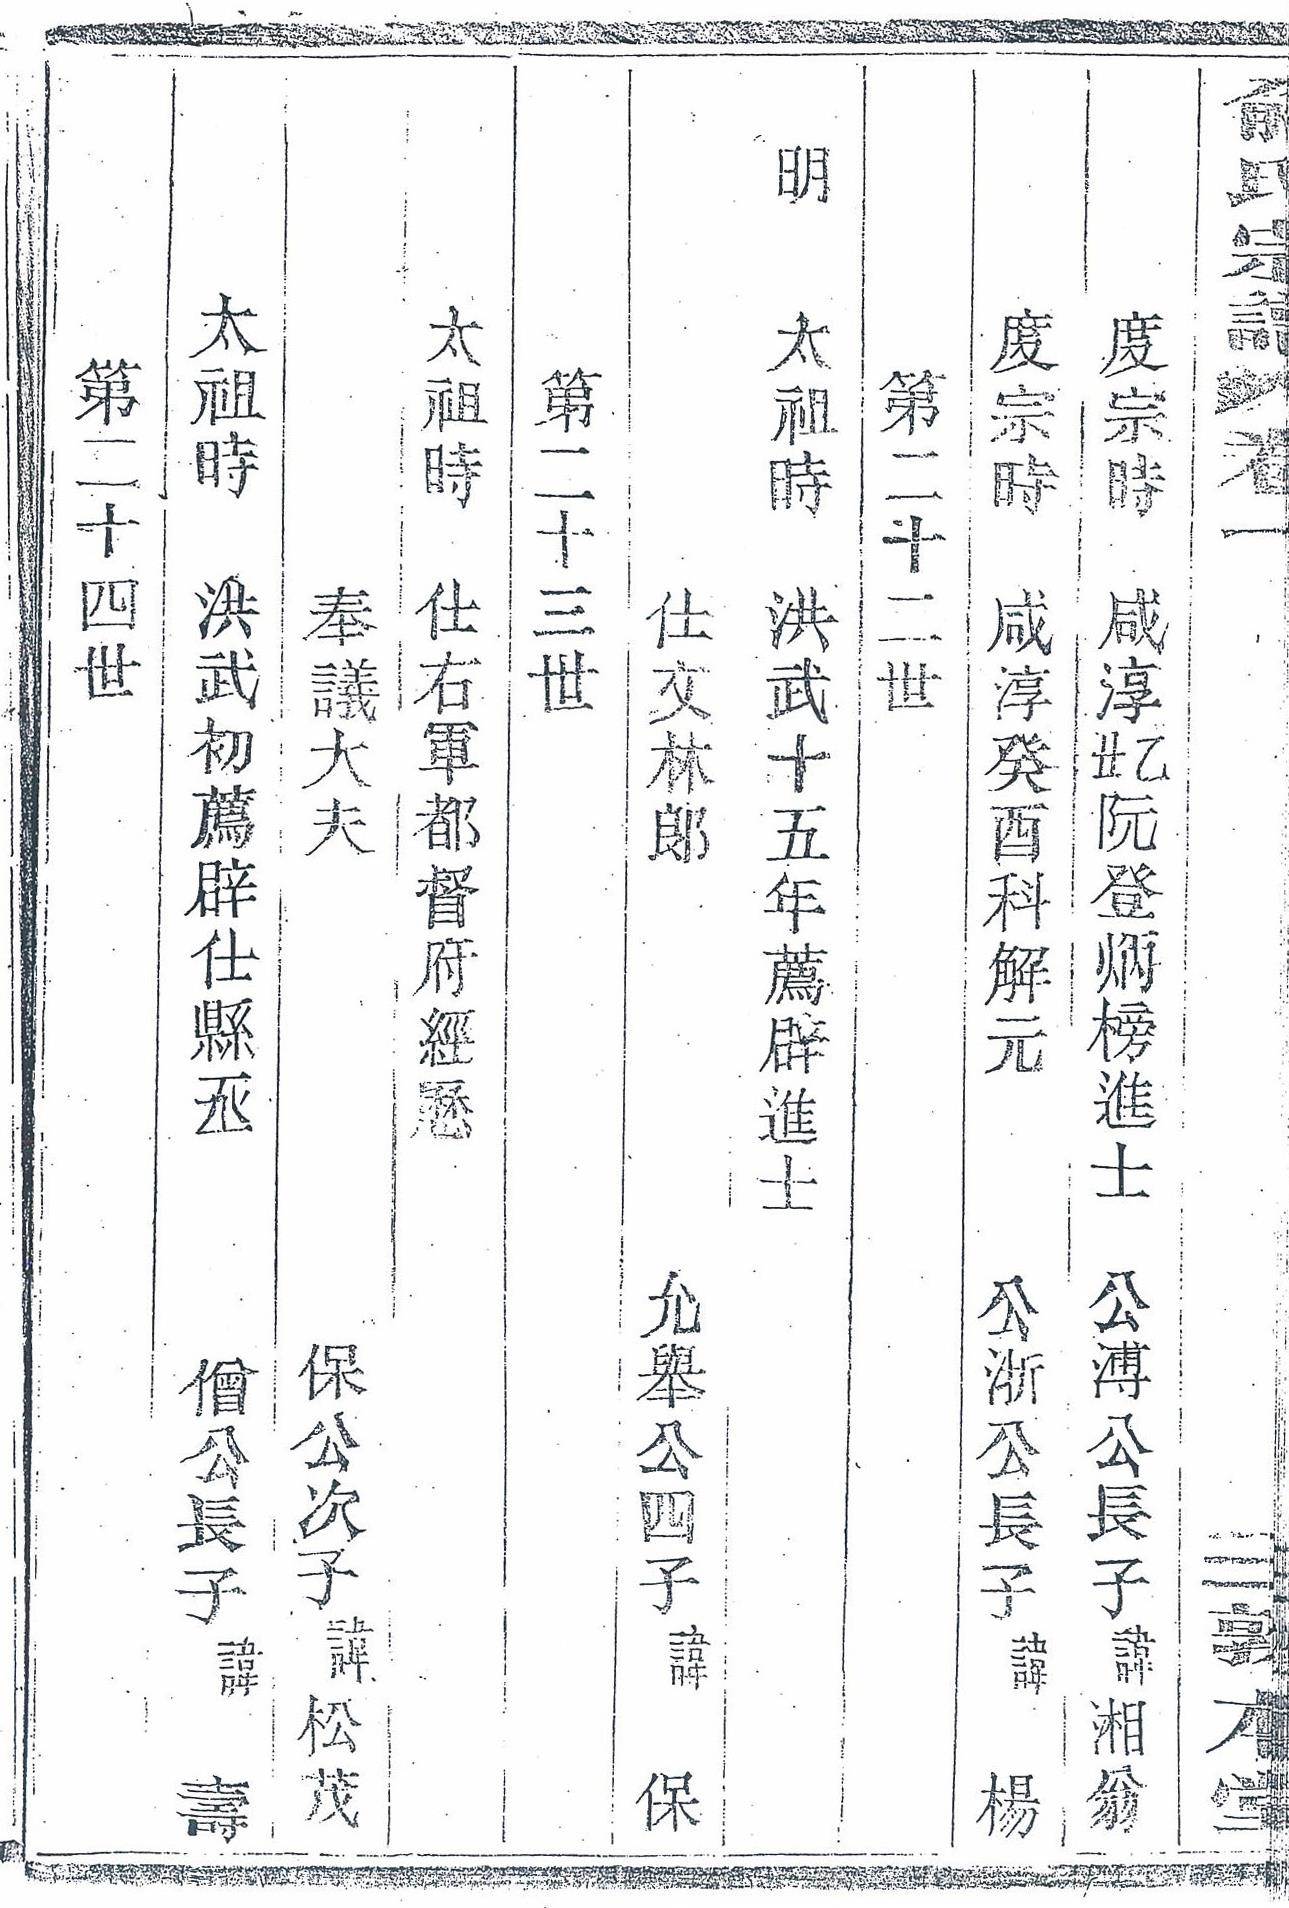 俞氏宗譜 卷一 三敦本堂
度宗時 咸淳乙丑阮登炳榜進士 公溥公長子諱湘翁
度宗時 咸淳癸酉科解元 公浙公長子諱楊
第二十二世
明 太祖時 洪武十五年薦辟進士
仕文林郎 允舉公四子諱保
第二十三世
太祖時 仕右軍都督府經歷
奉議大夫 保公次子諱松茂
太祖時 洪武初薦辟仕縣丞 僧公長子諱壽
第二十四世